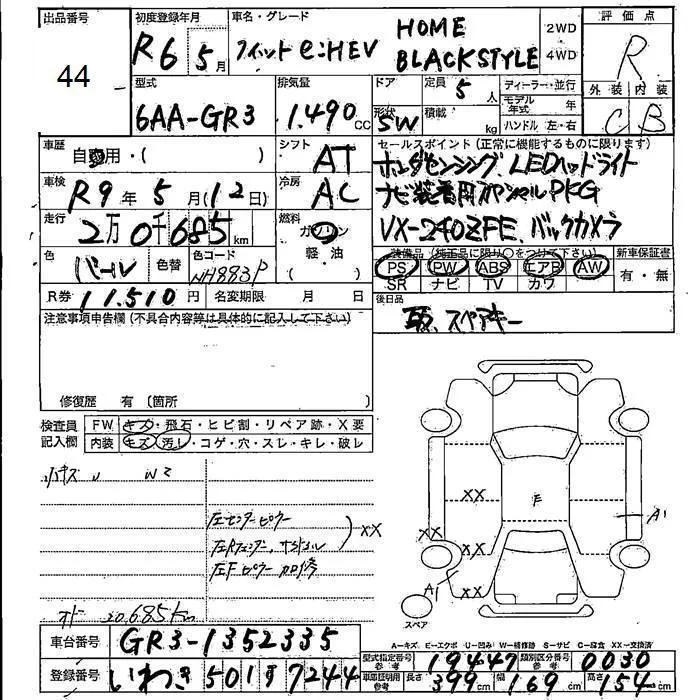 出品番号
44
初度登録年月
R6 5月
車名・グレード
フィット e:HEV
HOME
BLACKSTYLE
2WD
4WD
評価点
R
外装 内装
C B
型式
6AA-GR3
排気量
1.490 CC
ドア
形状
SW
定員
5人
積載
kg
ディーラー・並行
モデル年式 年
ハンドル 左・右
車歴
自家用・( )
シフト
AT
車検
R9年5月(12日)
冷房
AC
走行
2万0千685km
燃料
ガソリン
軽・油
( )
色
パール
色替
色コード
NH883P
R券 11.510円
名変期限 月 日
セールスポイント(正常に機能するものに限ります)
ホンダセンシング、LEDヘッドライト
ナビ装着用スペシャルPKG
VX-240ZFE、バックカメラ
装備品(純正品に限り○をつけて下さい)
PS PW ABS エアB AW
SR ナビ TV カワ
新車保証書
有・無
後日品
取、スペアキー
注意事項申告欄(不具合内容等は具体的に記入して下さい)
修復歴 有(箇所
検査員
記入欄
FW キズ・飛石・ヒビ割・リペア跡・X要
内装 キズ・汚レ・コゲ・穴・スレ・キレ・破レ
小キズ W2
左センターピラー
左Rフェンダー、サイドシル
XX
左Fピラー 加修
オド 20.685km
XX
E
A1
XX
XX
A1
XX
スペア
A=キズ E=エクボ U=凹み W=補修跡 S=サビ C=腐食 XX=交換済
車台番号 GR3-1352335
登録番号 いわき 501 す 7244
型式指定番号 参考 19447
類別区分番号 参考 0030
車庫証明用 参考 長さ 399cm 幅 169cm 高さ 154cm